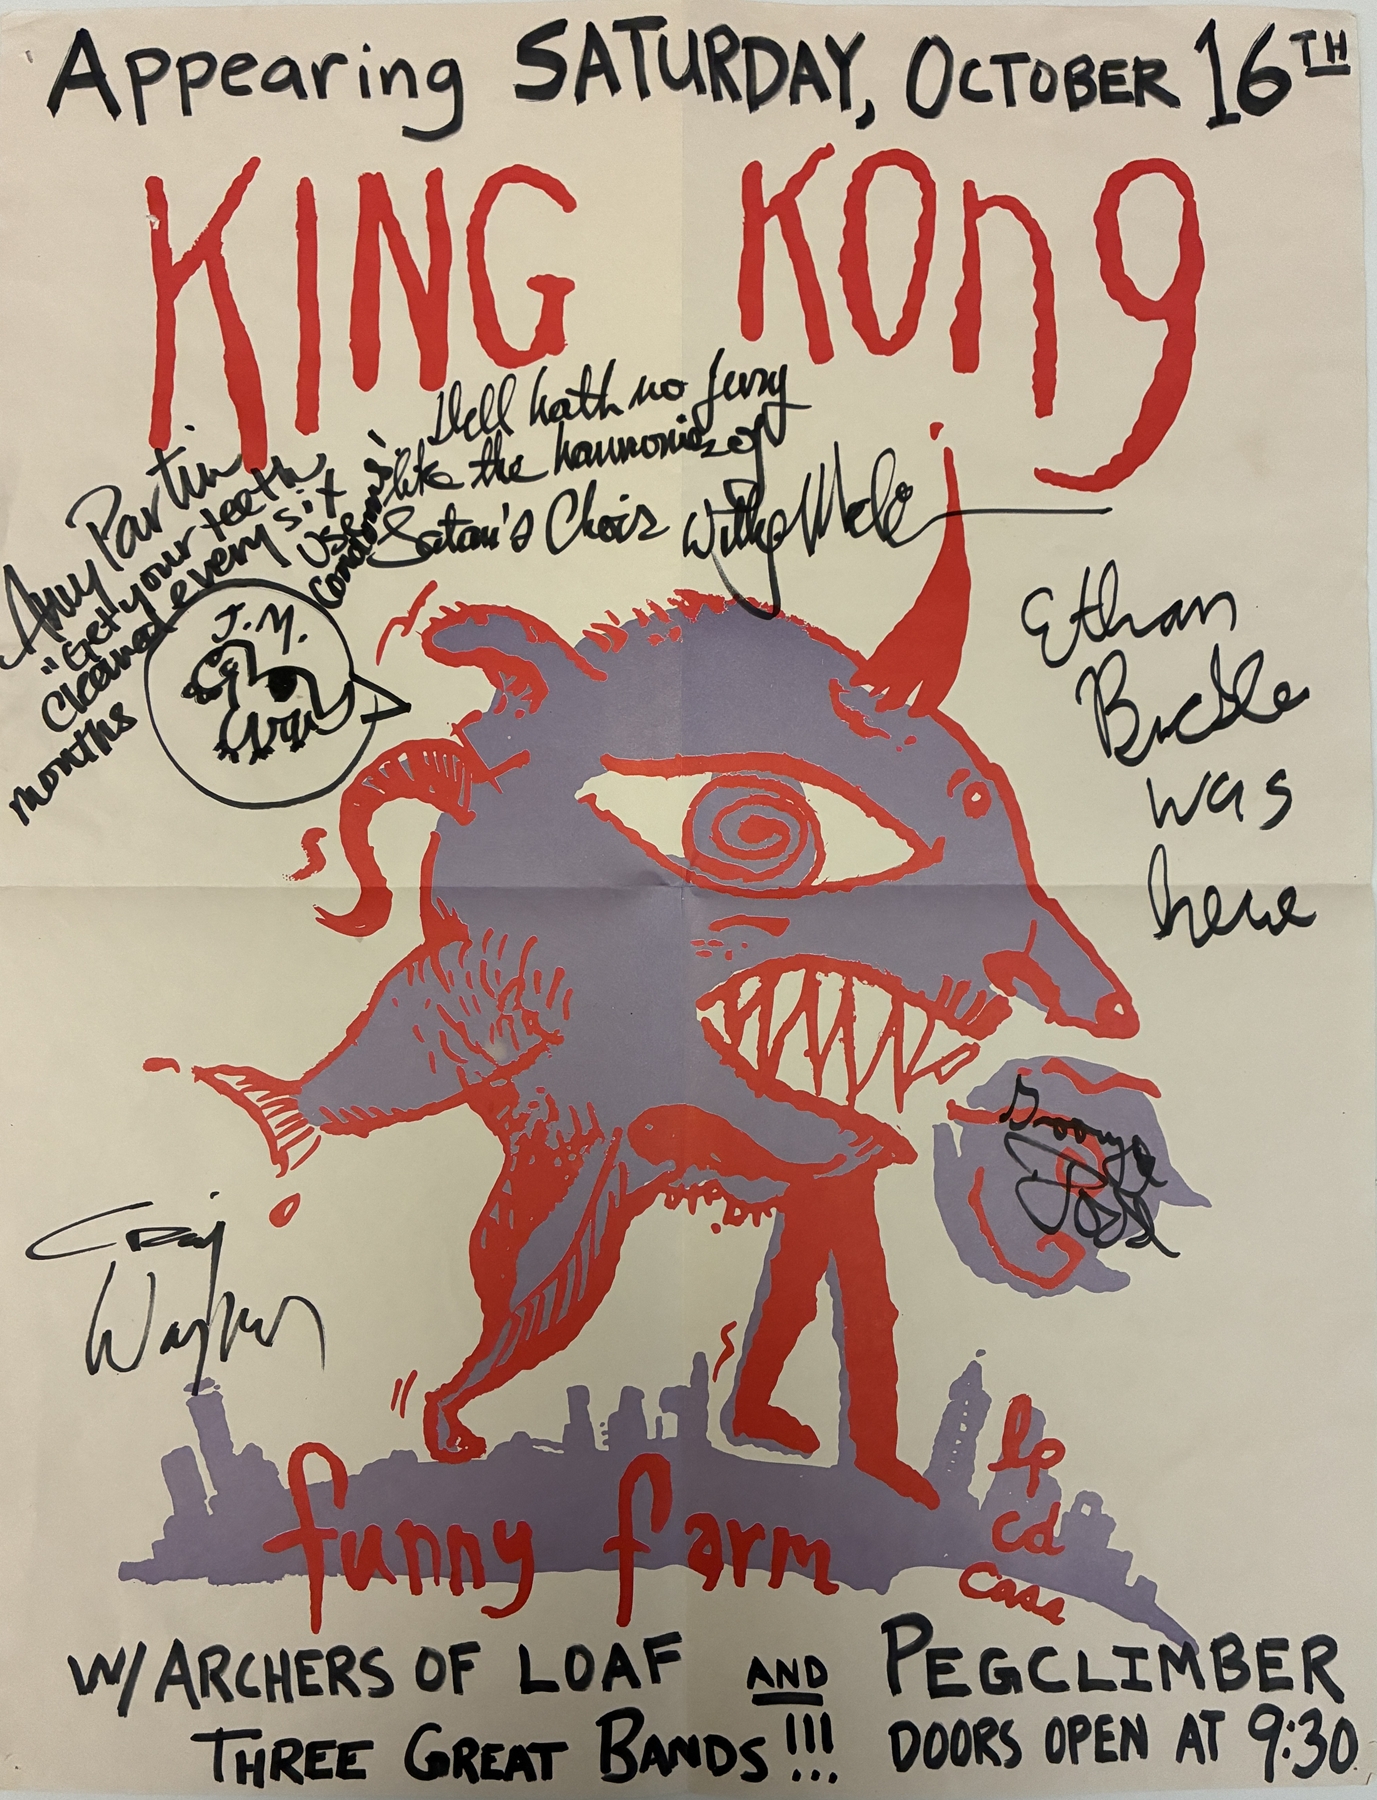 Appearing SATURDAY, OCTOBER 16TH
KING KOng
Amy Partin
"Get your teeth
cleaned every six
months
use
condoms!"
Hell hath no fury
like the harmonies of
Satan's Choir
J.M.
Ethan
Buckle
was
here
Groovy
Craig
lp
cd
case
funny farm
W/ ARCHERS OF LOAF AND PEGCLIMBER
THREE GREAT BANDS!!! DOORS OPEN AT 9:30